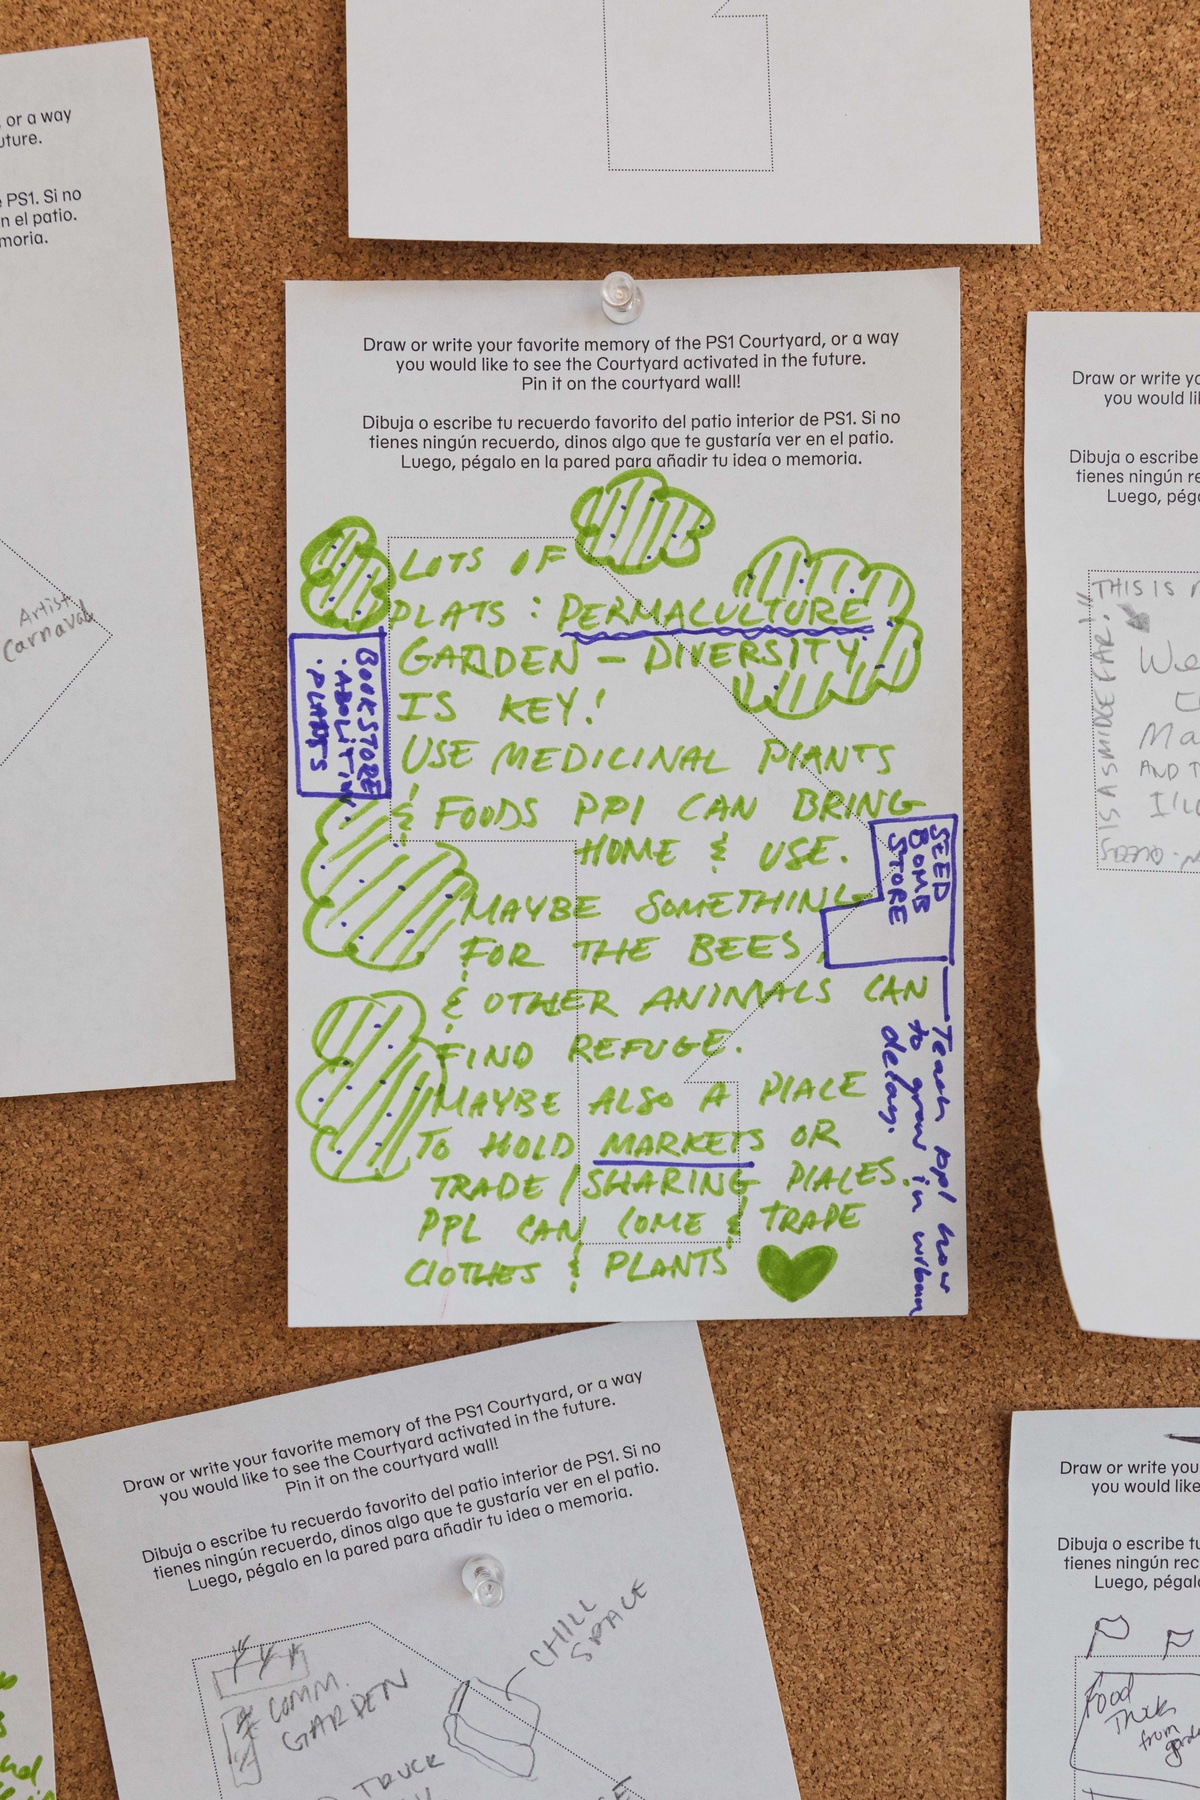 , or a way
uture.
e PS1. Si no
n el patio.
moria.
Artist
Carnaval
Draw or write your favorite memory of the PS1 Courtyard, or a way
you would like to see the Courtyard activated in the future.
Pin it on the courtyard wall!
Dibuja o escribe tu recuerdo favorito del patio interior de PS1. Si no
tienes ningún recuerdo, dinos algo que te gustaría ver en el patio.
Luego, pégalo en la pared para añadir tu idea o memoria.
LOTS OF
PLATS : PERMACULTURE
GARDEN – DIVERSITY
IS KEY!
USE MEDICINAL PLANTS
& FOODS PPL CAN BRING
HOME & USE.
MAYBE SOMETHING
FOR THE BEES,
& OTHER ANIMALS CAN
FIND REFUGE.
MAYBE ALSO A PLACE
TO HOLD MARKETS OR
TRADE / SHARING PLACES.
PPL CAN COME & TRADE
CLOTHES & PLANTS
BOOKSTORE
· ABOLITION
· PLANTS
SEED
BOMB
STORE
— Teach ppl how
to grow in urban
delay.
Draw or write yo
you would lik
Dibuja o escribe
tienes ningún re
Luego, péga
THIS IS
We
Ma
AND T
IS A SMIDGE FAR!!
Draw or write your favorite memory of the PS1 Courtyard, or a way
you would like to see the Courtyard activated in the future.
Pin it on the courtyard wall!
Dibuja o escribe tu recuerdo favorito del patio interior de PS1. Si no
tienes ningún recuerdo, dinos algo que te gustaría ver en el patio.
Luego, pégalo en la pared para añadir tu idea o memoria.
COMM.
GARDEN
CHILL
SPACE
TRUCK
Draw or write you
you would like
Dibuja o escribe tu
tienes ningún rec
Luego, pégalo
Food
Truck
from